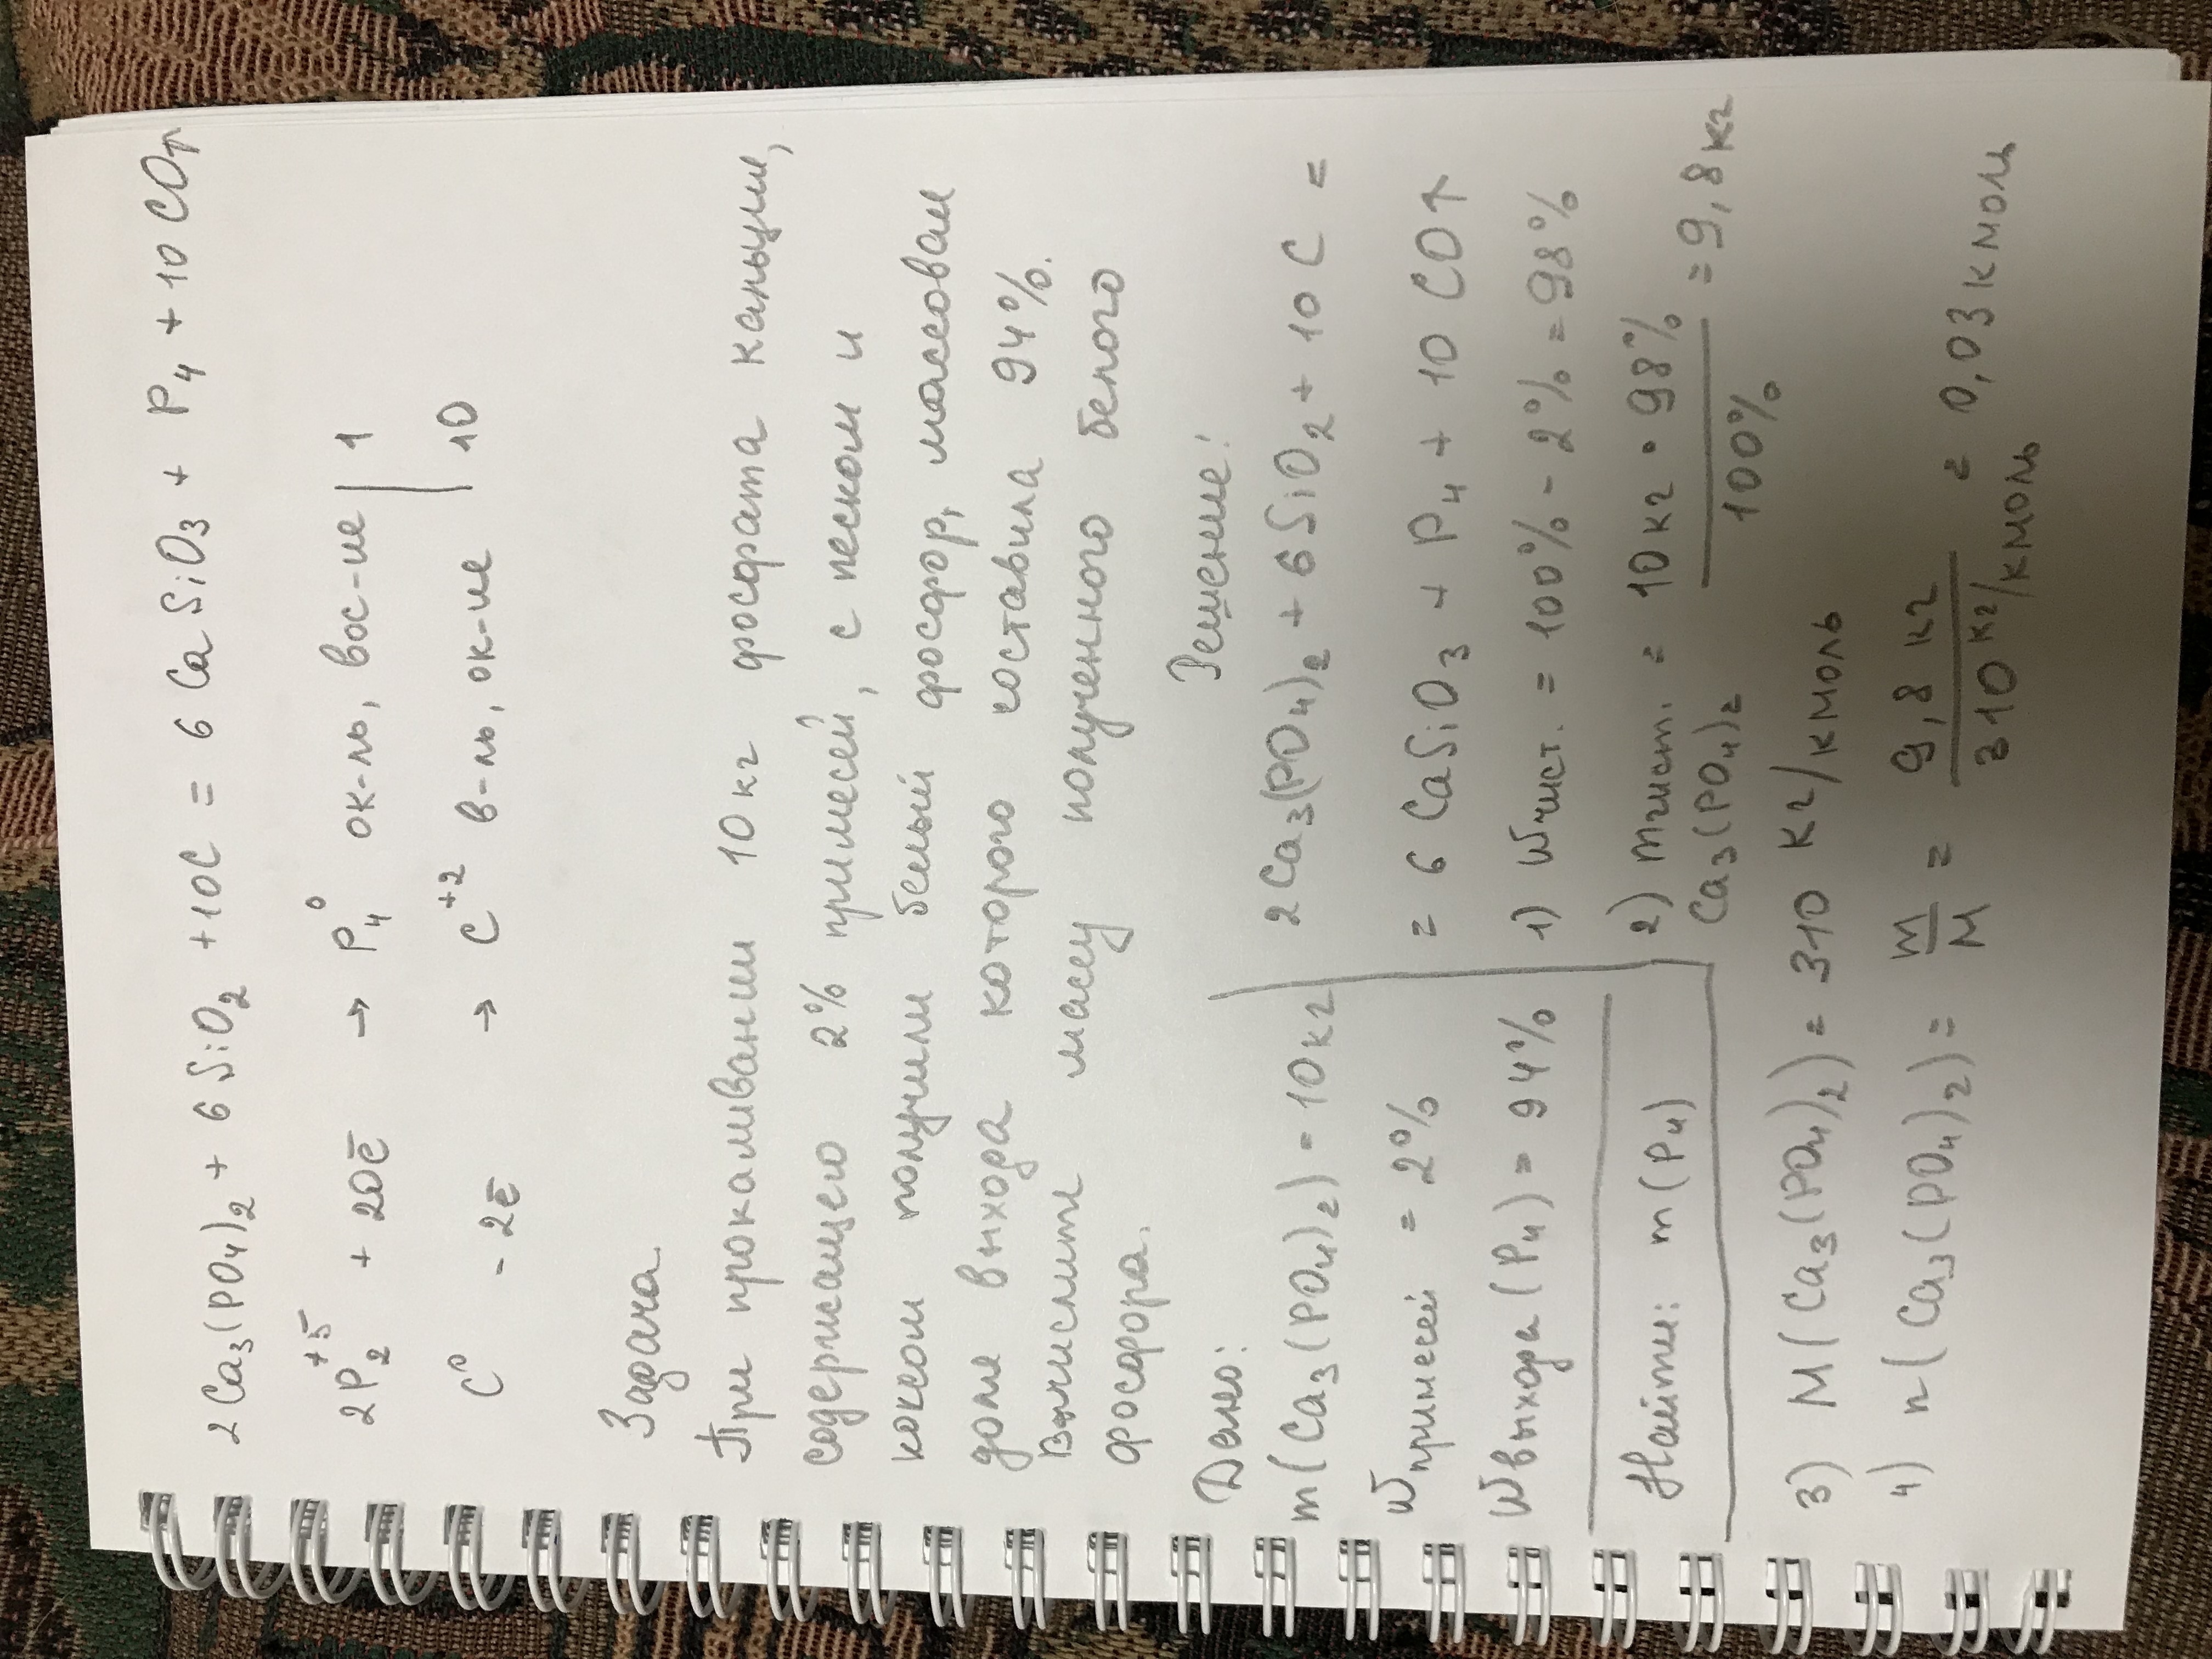 2Ca₃(PO₄)₂ + 6SiO₂ + 10C = 6CaSiO₃ + P₄ + 10CO↑
2P₂⁺⁵ + 20ē → P₄⁰ ок-ль, вос-ие | 1
C⁰ - 2ē → C⁺² в-ль, ок-ие | 10
Задача
При прокаливании 10кг фосфата кальция,
содержащего 2% примесей, с песком и
коксом получили белый фосфор, массовая
доля выхода которого составила 94%.
Вычислить массу полученного белого
фосфора.
Дано: Решение:
m(Ca₃(PO₄)₂) = 10кг 2Ca₃(PO₄)₂ + 6SiO₂ + 10C =
W примесей = 2% = 6CaSiO₃ + P₄ + 10CO↑
W выхода (P₄) = 94% 1) W чист. = 100% - 2% = 98%
Найти: m(P₄) 2) m чист. Ca₃(PO₄)₂ = 10кг · 98% / 100% = 9,8кг
3) M(Ca₃(PO₄)₂) = 310 кг/кмоль
4) n(Ca₃(PO₄)₂) = m/M = 9,8 кг / 310 кг/кмоль = 0,03кмоль